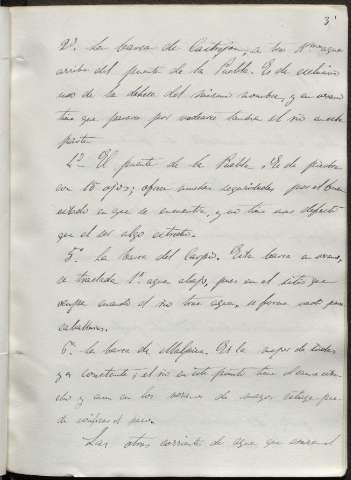 3
La barca de Castrejón, a tres Km agua
arriba del puente de la Puebla. Es de exclusivo
uso de la dehesa del mismo nombre, y en verano
tiene que pararse por vadearse tambien el río en esta
parte.
4º El puente de la Puebla. Es de piedra
con 15 ojos; ofrece muchas seguridades por el buen
estado en que se encuentra, y no tiene mas defecto
que el ser algo estrecho.
5º La barca del Carpio. Esta barca en verano,
se traslada 1º agua abajo, pues en el sitio que
ocupa cuando el río trae agua, se forma vado para
caballerías.
6º La barca de Malpica. Es la mejor de todas
y es constante; el río en este punto tiene
y aun en los meses de mayor estiage
Las otras corrientes de agua que